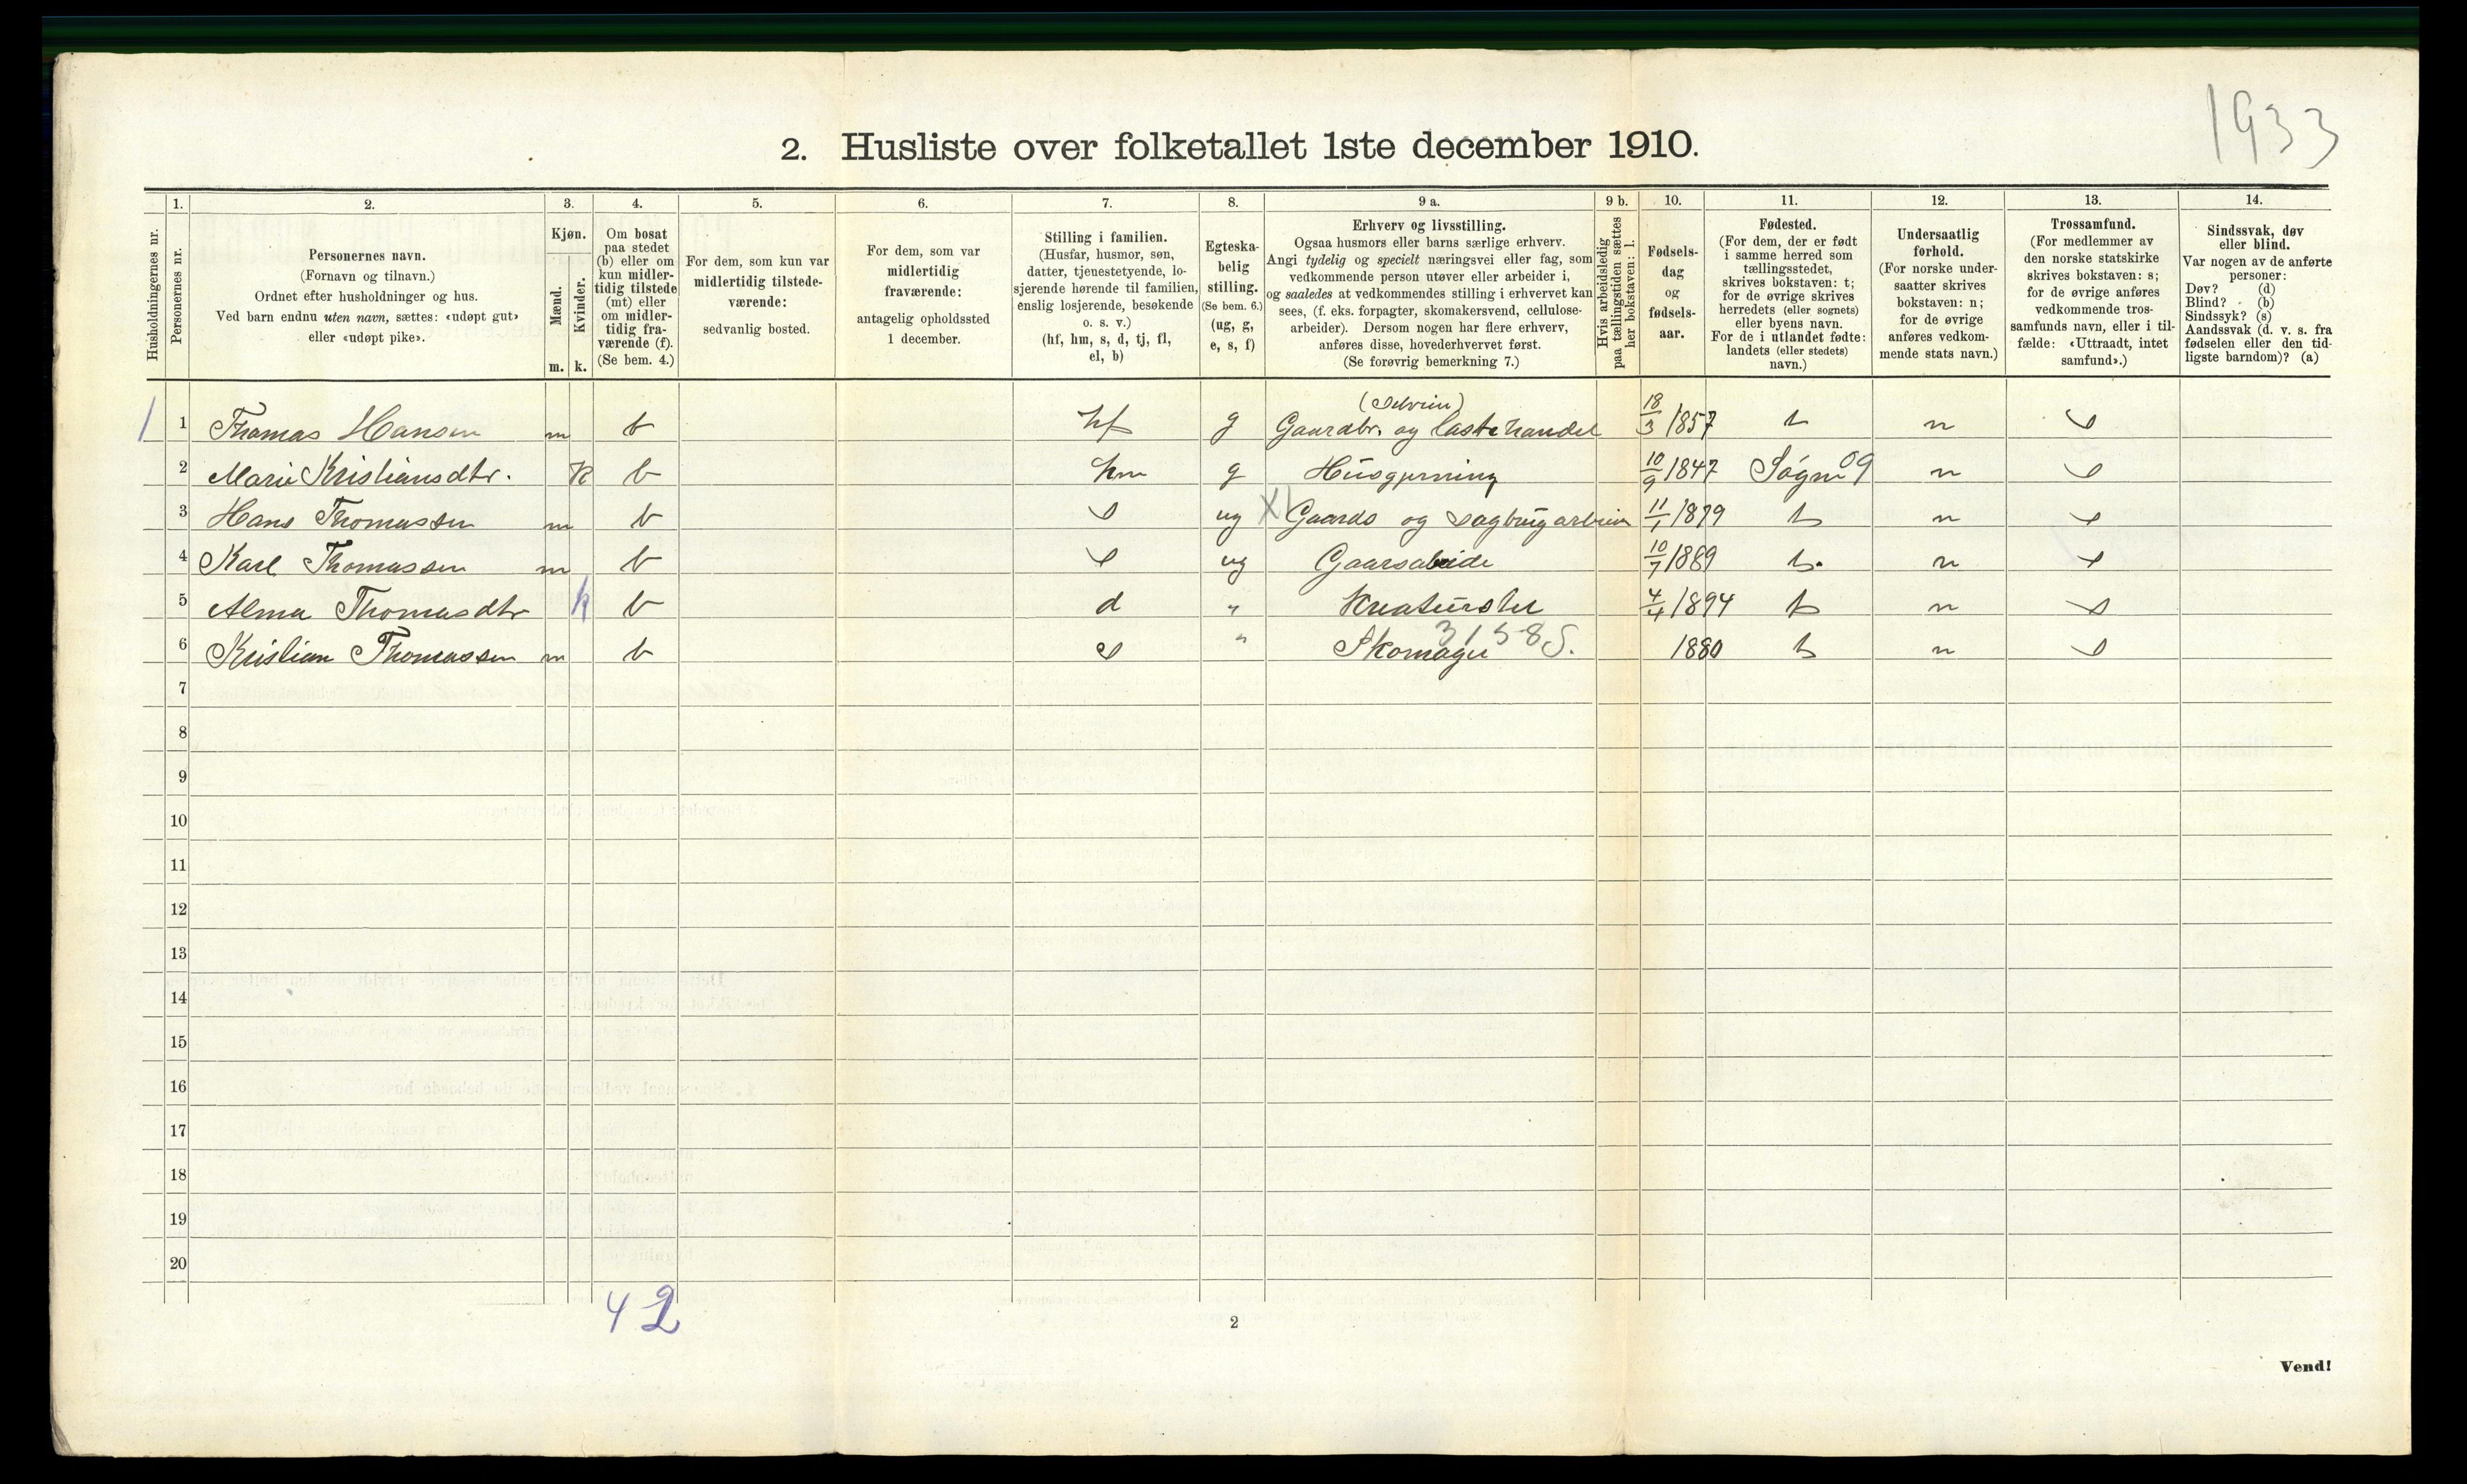 1933
2. Husliste over folketallet 1ste december 1910.
Husholdningernes nr.
1.
Personernes nr.
2.
Personernes navn.
(Fornavn og tilnavn.)
Ordnet efter husholdninger og hus.
Ved barn endnu uten navn, sættes: «udøpt gut»
eller «udøpt pike».
3.
Kjøn.
Mænd.
Kvinder.
m. k.
4.
Om bosat
paa stedet
(b) eller om
kun midler-
tidig tilstede
(mt) eller
om midler-
tidig fra-
værende (f).
(Se bem. 4.)
5.
For dem, som kun var
midlertidig tilstede-
værende:
sedvanlig bosted.
6.
For dem, som var
midlertidig
fraværende:
antagelig opholdssted
1 december.
7.
Stilling i familien.
(Husfar, husmor, søn,
datter, tjenestetyende, lo-
sjerende hørende til familien,
enslig losjerende, besøkende
o. s. v.)
(hf, hm, s, d, tj, fl,
el, b)
8.
Egteska-
belig
stilling.
(Se bem. 6.)
(ug, g,
e, s, f)
9 a.
Erhverv og livsstilling.
Ogsaa husmors eller barns særlige erhverv.
Angi tydelig og specielt næringsvei eller fag, som
vedkommende person utøver eller arbeider i,
og saaledes at vedkommendes stilling i erhvervet kan
sees, (f. eks. forpagter, skomakersvend, cellulose-
arbeider). Dersom nogen har flere erhverv,
anføres disse, hovederhvervet først.
(Se forøvrig bemerkning 7.)
9 b.
Hvis arbeidsledig
paa tællingstiden sættes
her bokstaven: l.
10.
Fødsels-
dag
og
fødsels-
aar.
11.
Fødested.
(For dem, der er født
i samme herred som
tællingsstedet,
skrives bokstaven: t;
for de øvrige skrives
herredets (eller sognets)
eller byens navn.
For de i utlandet fødte:
landets (eller stedets)
navn.)
12.
Undersaatlig
forhold.
(For norske under-
saatter skrives
bokstaven: n;
for de øvrige
anføres vedkom-
mende stats navn.)
13.
Trossamfund.
(For medlemmer av
den norske statskirke
skrives bokstaven: s;
for de øvrige anføres
vedkommende tros-
samfunds navn, eller i til-
fælde: «Uttraadt, intet
samfund».)
14.
Sindssvak, døv
eller blind.
Var nogen av de anførte
personer:
Døv? (d)
Blind? (b)
Sindssyk? (s)
Aandssvak (d. v. s. fra
fødselen eller den tid-
ligste barndom)? (a)
1 1 Thomas Hansen m b hf g (Selveier) Gaardbr. og lastehandel 18/3 1857 t n s
2 Marie Kristiansdtr. k b hm g Husgjerning 10/9 1847 Søgne 09 n s
3 Hans Thomassen m b s ug X Gaards og sagbrugarbeier 11/1 1879 t n s
4 Karl Thomassen m b s ug Gaarsabeide 10/7 1889 t. n s
5 Alma Thomasdtr k b d " Kreaturstel 4/4 1894 t n s
6 Kristian Thomassen m b s " Skomager 3158 S. 1880 t n s
7
8
9
10
11
12
13
14
15
16
17
18
19
20
4 2
2
Vend!